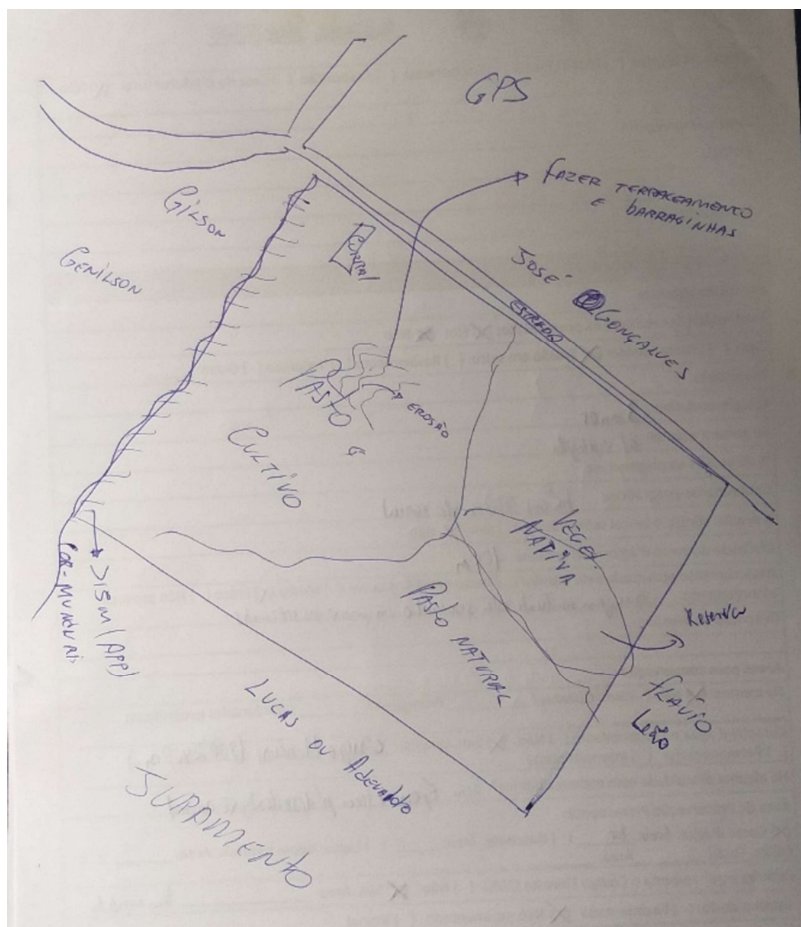 GPS
FAZER TERRACEAMENTO
E BARRAGINHAS
GILSON
GENILSON
CURRAL
JOSÉ GONÇALVES
ESTRADA
PASTO
EROSÃO
CULTIVO
VEGET
NATIVA
PASTO NATURAL
Reserva
>15M (APP)
FLÁVIO
LEÃO
LUCAS OU ADEVALDO
JURAMENTO